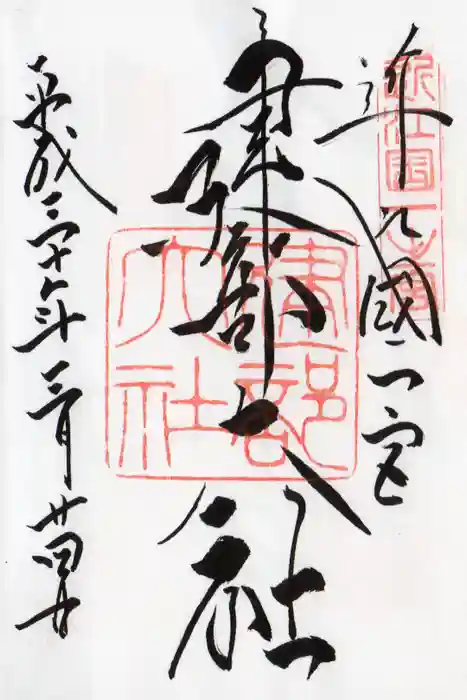 近江國一宮
近江国一之宮
建部大社
建部大社
平成三十年三月廿四日